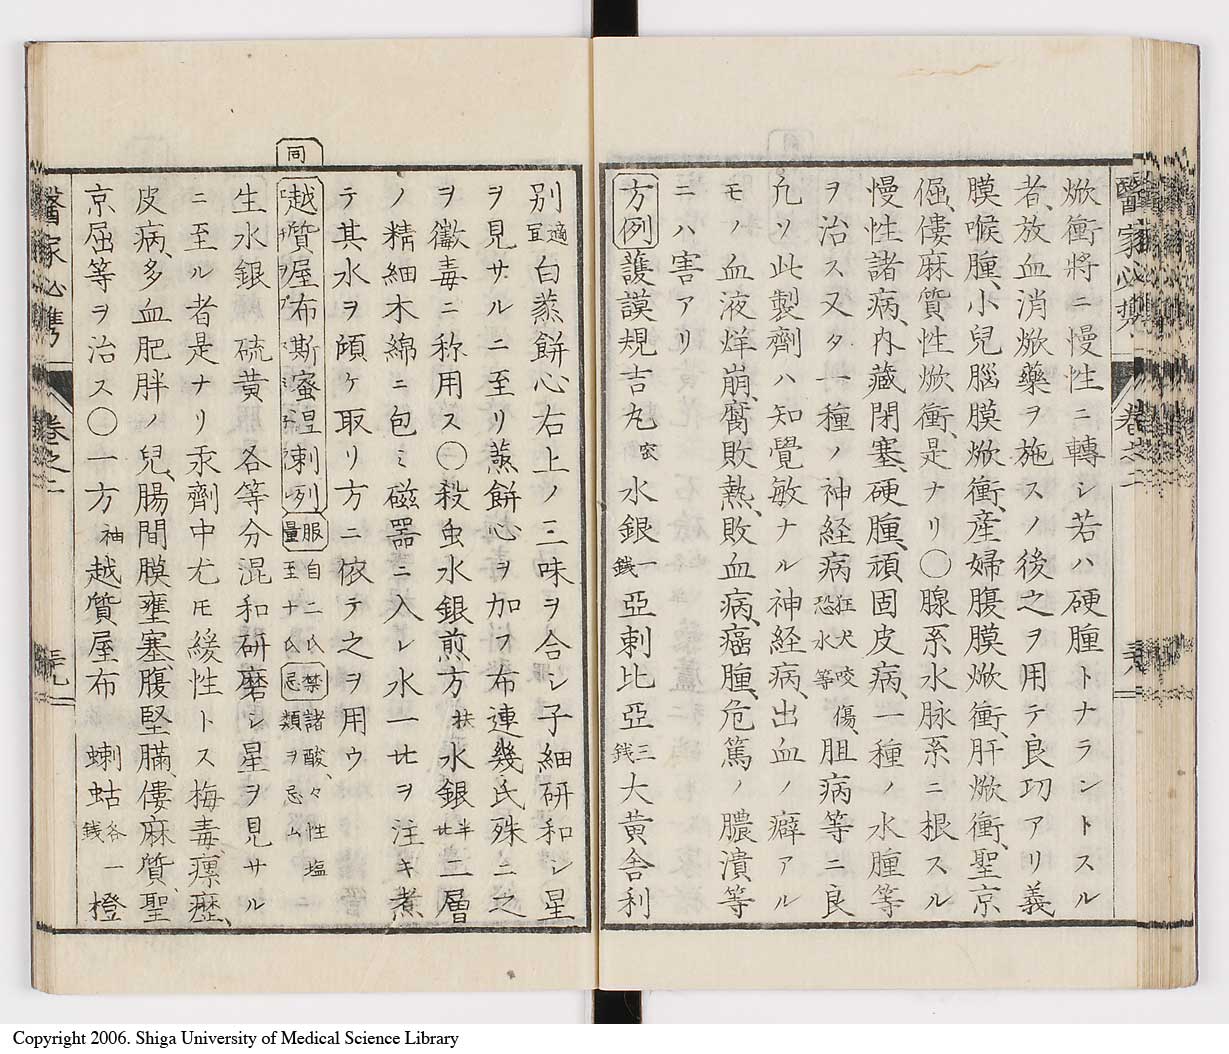 焮衝將ニ慢性ニ轉シ若ハ硬腫トナラントスル
者、放血消焮藥ヲ施スノ後之ヲ用テ良功アリ義
膜喉腫、小兒腦膜焮衝、産婦腹膜焮衝、肝焮衝、聖京
偓、僂麻質性焮衝、是ナリ〇腺系水脉系ニ根スル
慢性諸病、内藏閉塞、硬腫、頑固皮病、一種ノ水腫等
ヲ治ス又タ一種ノ神経病狂犬咬傷、恐水等胆病等ニ良
凢ソ此製劑ハ知覺敏ナル神経病、出血ノ癖アル
モノ血液烊崩、腐敗熱、敗血病、癌腫、危篤ノ膿潰等
ニハ害アリ
方例 護謨規吉丸 家 水銀 一錢 亞剌比亞 三錢 大黄舎利
別 適宜 白蒸餅心右上ノ三味ヲ合シ子細研和シ星
ヲ見サルニ至リ蒸餅心ヲ加フ布連幾氏殊ニ之
ヲ黴毒ニ称用ス〇殺虫水銀煎方 扶 水銀 半 二層
ノ精細木綿ニ包ミ磁器ニ入レ水一 ヲ注キ煮
テ其水ヲ傾ケ取リ方ニ依テ之ヲ用ウ
同
越質屋布斯蜜涅剌列 服量 自二氏至十氏 禁忌 諸酸、々性塩類ヲ忌ム
生水銀 硫黄 各等分混和研磨シ星ヲ見サル
ニ至ル者是ナリ汞劑中尤モ緩性トス梅毒、瘰癧、
皮病、多血肥胖ノ兒、腸間膜壅塞、腹堅腸、僂麻質、聖
京屈等ヲ治ス〇一方 袖 越質屋布 蝲蛄 各一錢 橙
醫家必携 卷之二
醫家必携 卷之二